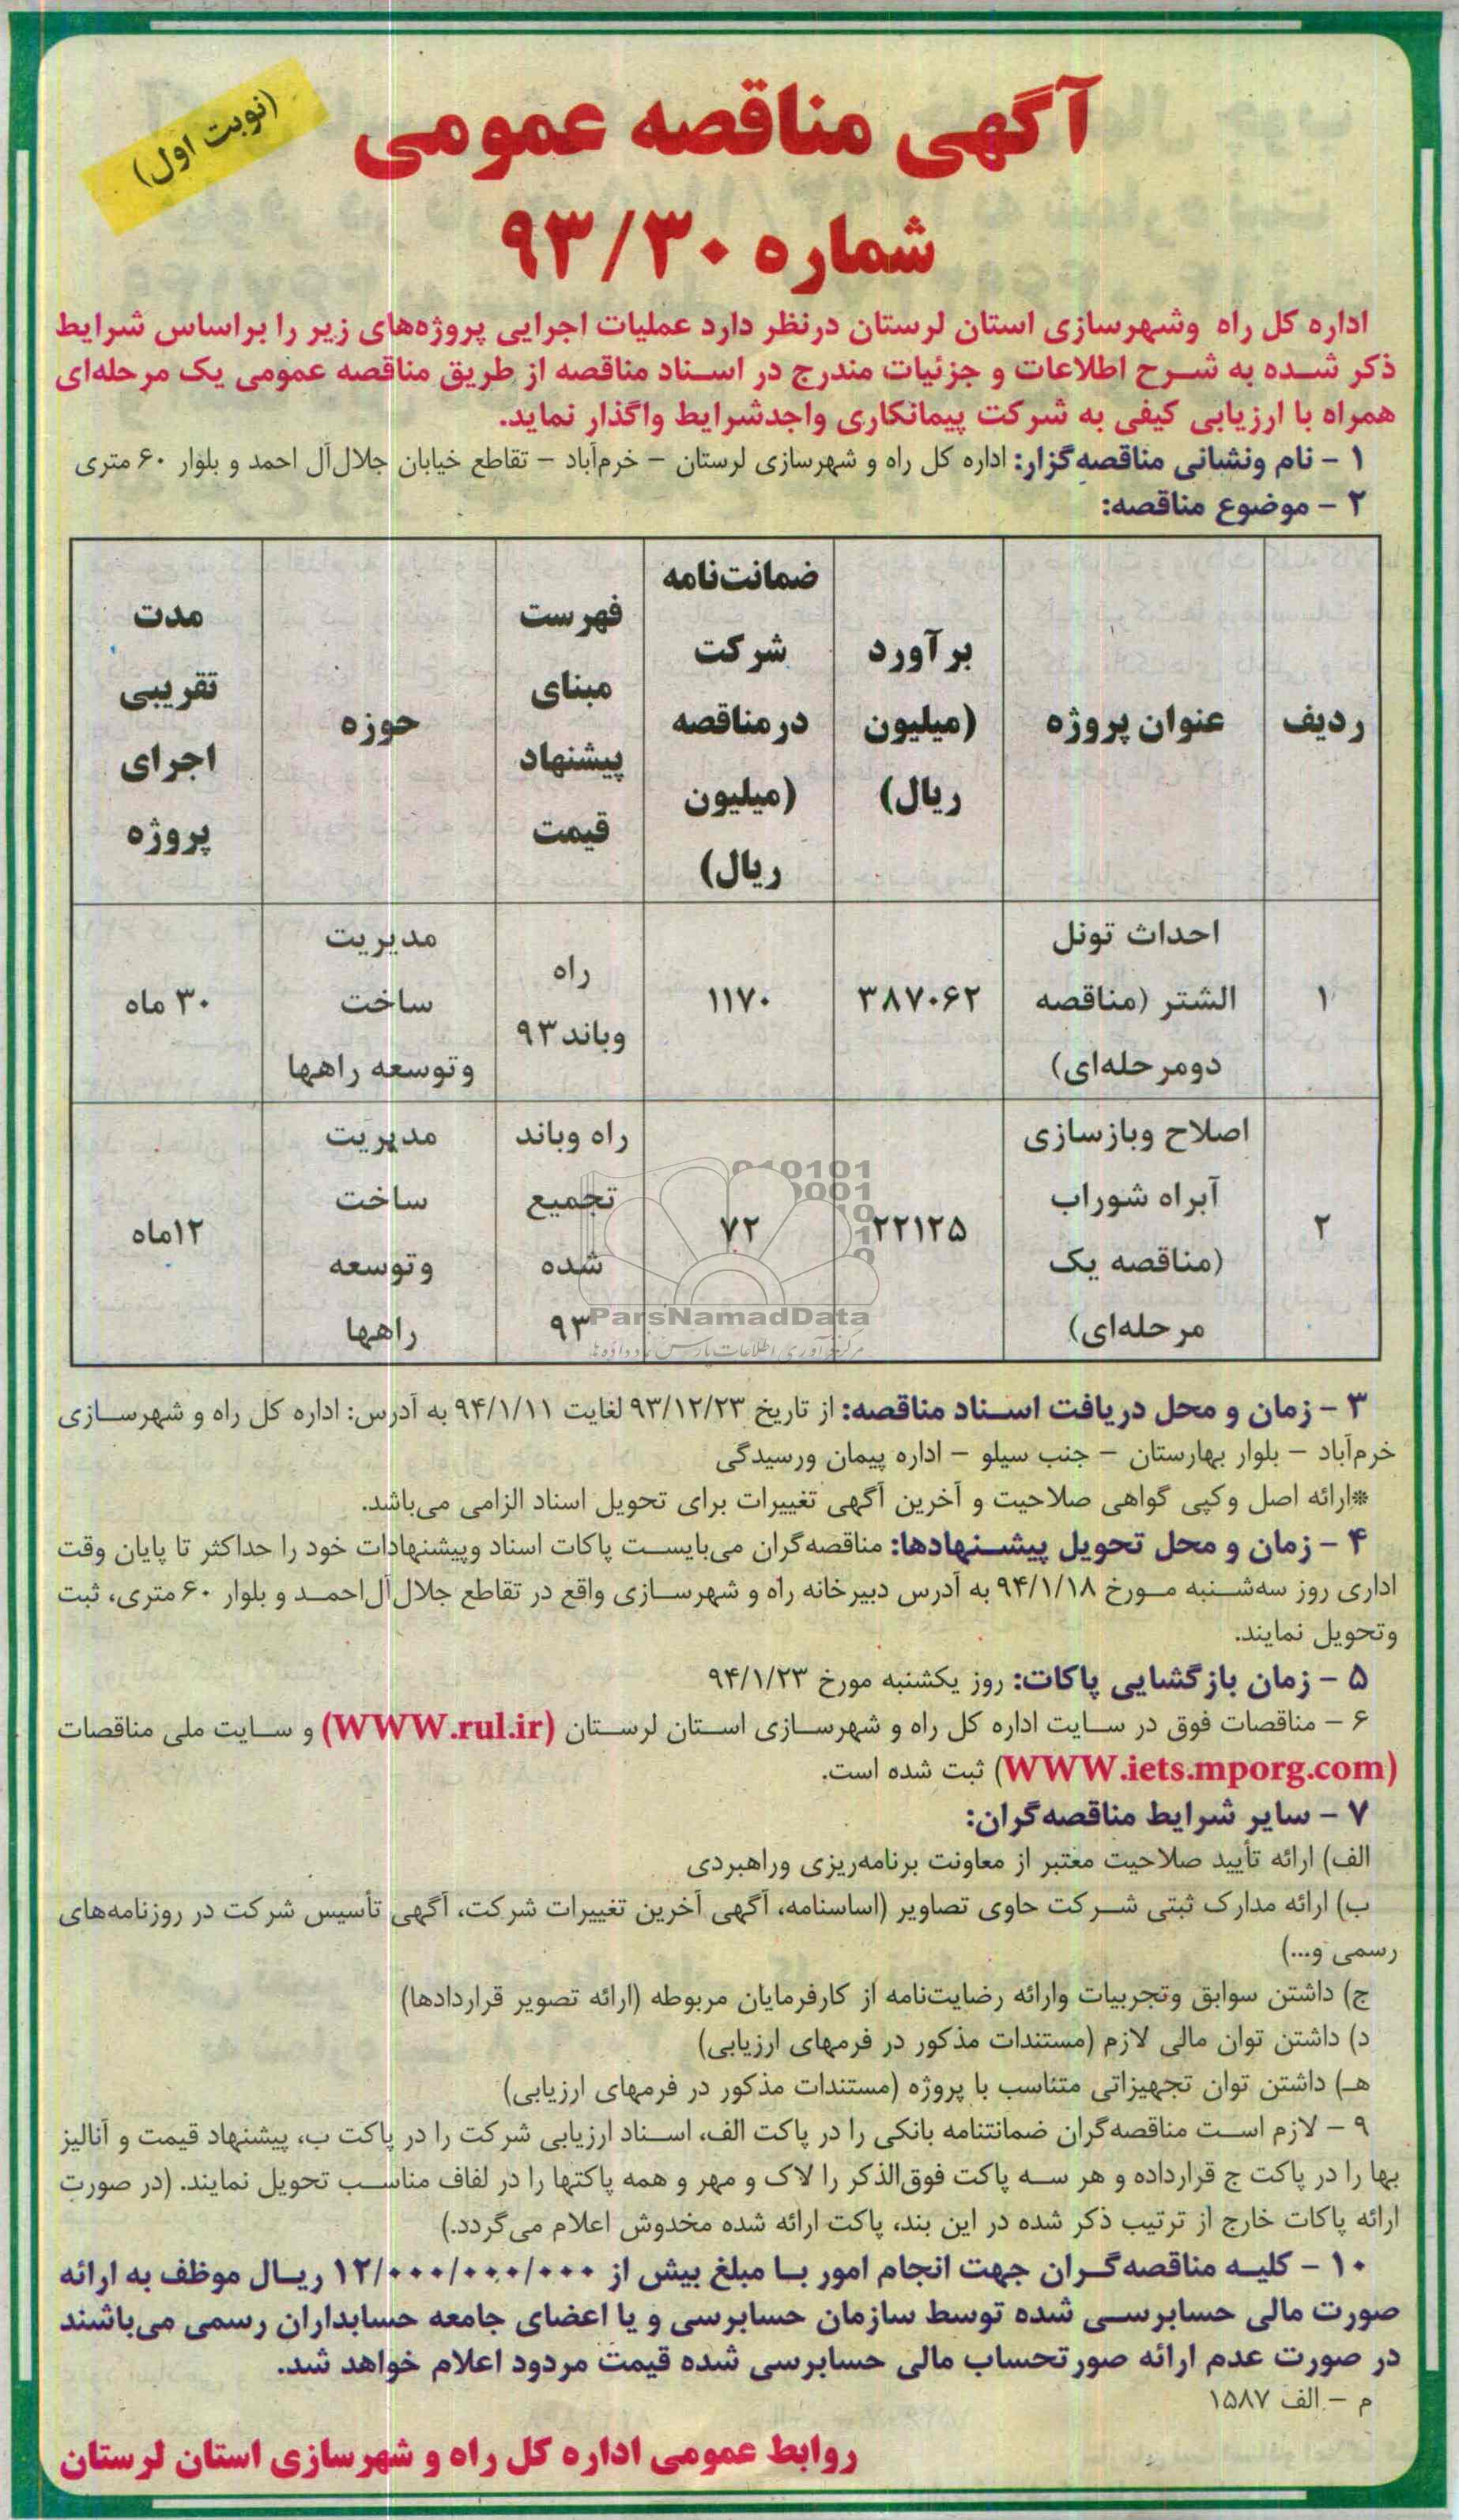 (نوبت اول)
آگهی مناقصه عمومی
شماره ۹۳/۳۰
اداره کل راه وشهرسازی استان لرستان درنظر دارد عملیات اجرایی پروژه‌های زیر را براساس شرایط
ذکر شده به شرح اطلاعات و جزئیات مندرج در اسناد مناقصه از طریق مناقصه عمومی یک مرحله‌ای
همراه با ارزیابی کیفی به شرکت پیمانکاری واجدشرایط واگذار نماید.
۱ – نام ونشانی مناقصه‌گزار: اداره کل راه و شهرسازی لرستان – خرم‌آباد – تقاطع خیابان جلال‌آل احمد و بلوار ۶۰ متری
۲ – موضوع مناقصه:
ردیف | عنوان پروژه | برآورد (میلیون ریال) | ضمانت‌نامه شرکت درمناقصه (میلیون ریال) | فهرست مبنای پیشنهاد قیمت | حوزه | مدت تقریبی اجرای پروژه
۱ | احداث تونل الشتر (مناقصه دومرحله‌ای) | ۳۸۷۰۶۲ | ۱۱۷۰ | راه وباند۹۳ | مدیریت ساخت وتوسعه راهها | ۳۰ ماه
۲ | اصلاح وبازسازی آبراه شوراب (مناقصه یک مرحله‌ای) | ۲۲۱۲۵ | ۷۲ | راه وباند تجمیع شده ۹۳ | مدیریت ساخت وتوسعه راهها | ۱۲ماه
ParsNamadData
۳ – زمان و محل دریافت اسناد مناقصه: از تاریخ ۹۳/۱۲/۲۳ لغایت ۹۴/۱/۱۱ به آدرس: اداره کل راه و شهرسازی
خرم‌آباد – بلوار بهارستان – جنب سیلو – اداره پیمان ورسیدگی
*ارائه اصل وکپی گواهی صلاحیت و آخرین آگهی تغییرات برای تحویل اسناد الزامی می‌باشد.
۴ – زمان و محل تحویل پیشنهادها: مناقصه‌گران می‌بایست پاکات اسناد وپیشنهادات خود را حداکثر تا پایان وقت
اداری روز سه‌شنبه مورخ ۹۴/۱/۱۸ به آدرس دبیرخانه راه و شهرسازی واقع در تقاطع جلال‌آل‌احمد و بلوار ۶۰متری، ثبت
وتحویل نمایند.
۵ – زمان بازگشایی پاکات: روز یکشنبه مورخ ۹۴/۱/۲۳
۶ – مناقصات فوق در سایت اداره کل راه و شهرسازی استان لرستان (WWW.rul.ir) و سایت ملی مناقصات
(WWW.iets.mporg.com) ثبت شده است.
۷ – سایر شرایط مناقصه‌گران:
الف) ارائه تأیید صلاحیت معتبر از معاونت برنامه‌ریزی وراهبردی
ب) ارائه مدارک ثبتی شرکت حاوی تصاویر (اساسنامه، آگهی آخرین تغییرات شرکت، آگهی تأسیس شرکت در روزنامه‌های
رسمی و...)
ج) داشتن سوابق وتجربیات وارائه رضایت‌نامه از کارفرمایان مربوطه (ارائه تصویر قراردادها)
د) داشتن توان مالی لازم (مستندات مذکور در فرمهای ارزیابی)
هـ) داشتن توان تجهیزاتی متناسب با پروژه (مستندات مذکور در فرمهای ارزیابی)
۹ – لازم است مناقصه‌گران ضمانتنامه بانکی را در پاکت الف، اسناد ارزیابی شرکت را در پاکت ب، پیشنهاد قیمت و آنالیز
بها را در پاکت ج قرارداده و هر سه پاکت فوق‌الذکر را لاک و مهر و همه پاکتها را در لفاف مناسب تحویل نمایند. (در صورت
ارائه پاکات خارج از ترتیب ذکر شده در این بند، پاکت ارائه شده مخدوش اعلام می‌گردد.)
۱۰ – کلیه مناقصه‌گران جهت انجام امور با مبلغ بیش از ۱۲/۰۰۰/۰۰۰/۰۰۰ ریال موظف به ارائه
صورت مالی حسابرسی شده توسط سازمان حسابرسی و یا اعضای جامعه حسابداران رسمی می‌باشند
در صورت عدم ارائه صورتحساب مالی حسابرسی شده قیمت مردود اعلام خواهد شد.
م – الف ۱۵۸۷
روابط عمومی اداره کل راه و شهرسازی استان لرستان